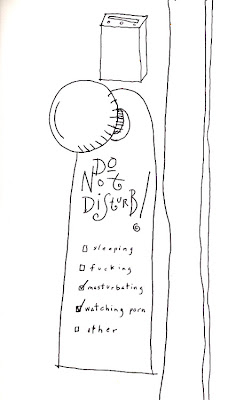 Do
Not
DisturB!
sleeping
fucking
masturbating
watching porn
other